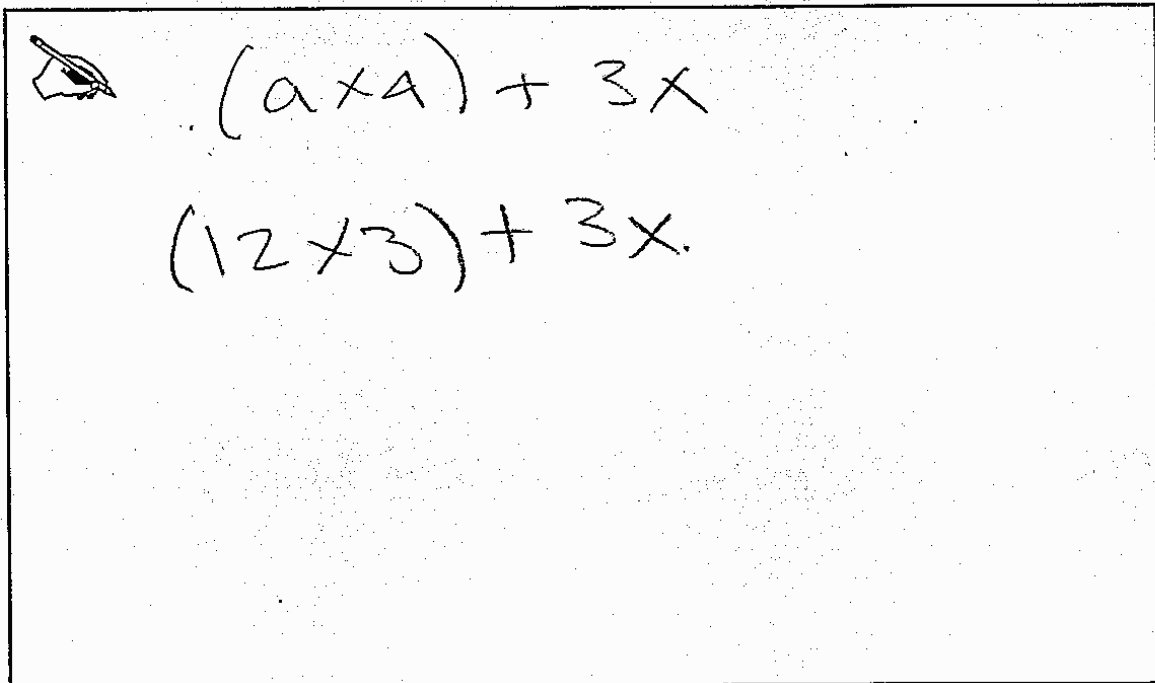 (a×4) + 3x
(12×3) + 3x.